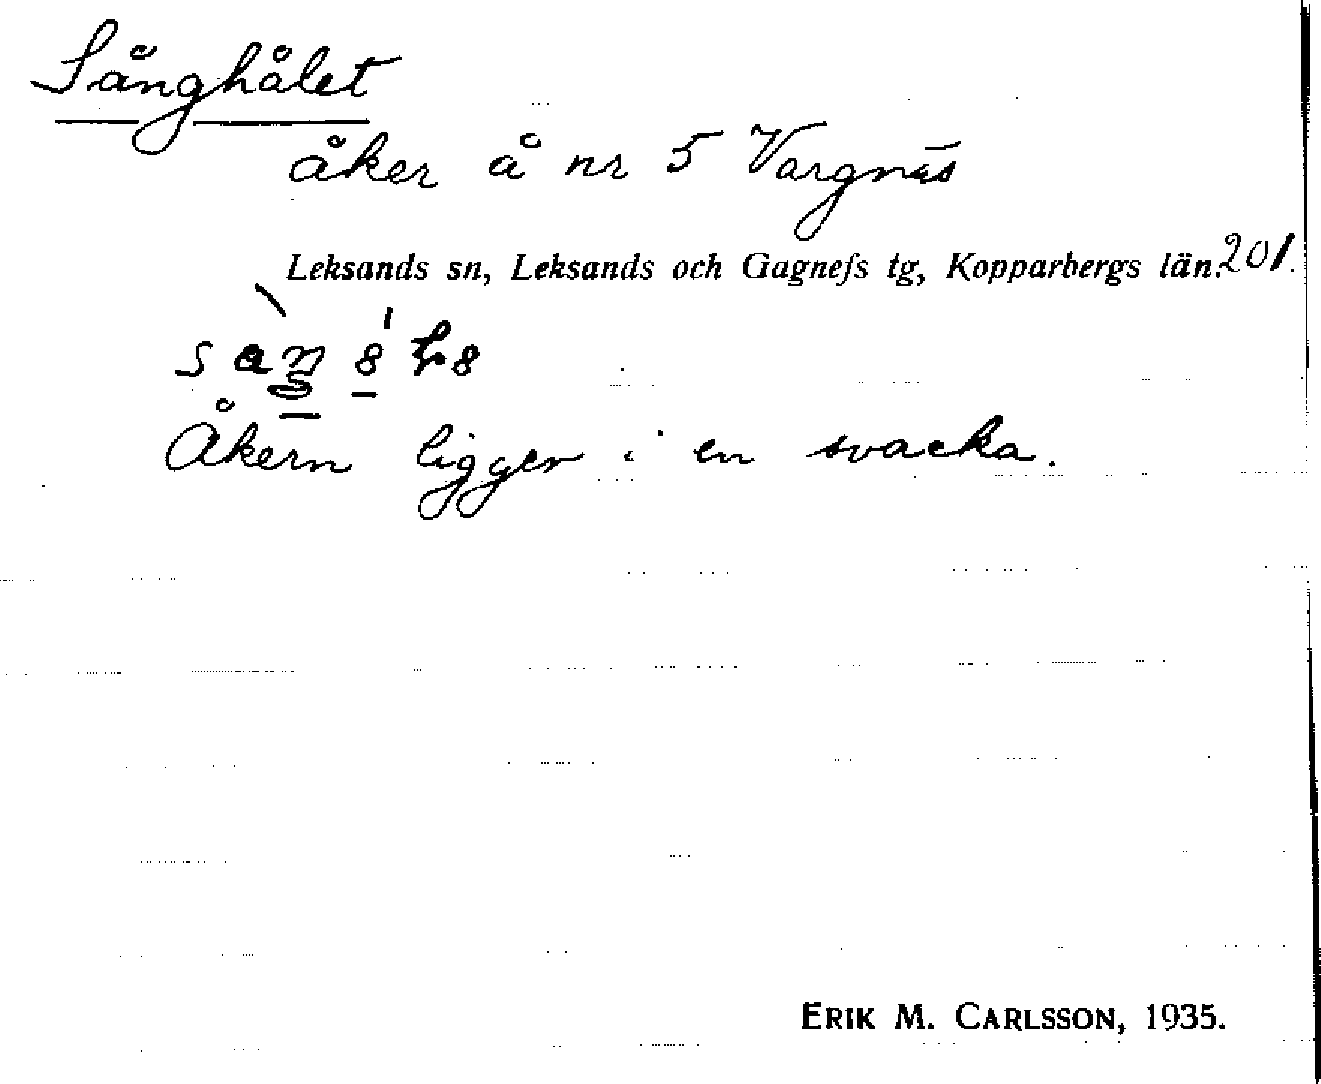 Sånghålet
åker å nr 5 Vargnäs
Leksands sn, Leksands och Gagnefs tg, Kopparbergs län. 201.
Åkern ligger i en svacka.
ERIK M. CARLSSON, 1935.